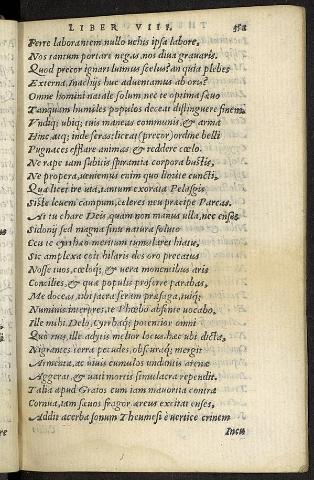 LIBER VIII.
Ferre laborantem nullo uehis ipsa labore,
Nos tantum portare negas, nos diua grauaris.
Quod precor ignari luimus scelus? an quia plebes
Externa, Inachijs huc aduentamus ab oris?
Omne homini natale solum: nec te optima sæuo
Tanquam humiles populos deceat distinguere finem.
Vndiq; ubiq; tuis maneas communis, & arma
Hinc atq; inde feras: liceat (precor) ordine belli
Pugnaces efflare animas, & reddere cœlo.
Ne rape tam subitis spirantia corpora bustis,
Ne propera, ueniemus enim quo limite cuncti,
Qua licet ire uia, tantum exorata Pelasgis
Siste leuem campum, celeres neu præcipe Parcas.
At tu chare Deis, quem non manus ulla, nec enses
Sidonij sed magna sinu natura soluto
Ceu te Cyrrhæo meritum tumularet hiatu,
Sic amplexa coit, hilaris des oro precatus
Nosse tuos, cœloq; & uera monentibus aris
Concilies, & qua populis proferre parabas,
Me doceas, tibi sacra feram præsaga, tuiq;
Numinis interpres, te Phœbo absente uocabo.
Ille mihi Delo, Cyrrhaq; potentior omni
Quo ruis, ille adytis melior locus. hæc ubi dicta,
Nigrantes terra pecudes, obscuraq; mergit
Armenta, ac uiuis cumulos undantis arenæ
Aggerat, & uati mortis simulacra rependit.
Talia apud Graios cum iam mauortia contra
Cornua, iam sæuos fragor æreus excitat enses,
Addit acerba sonum Theumesi è uertice crinem
Incu